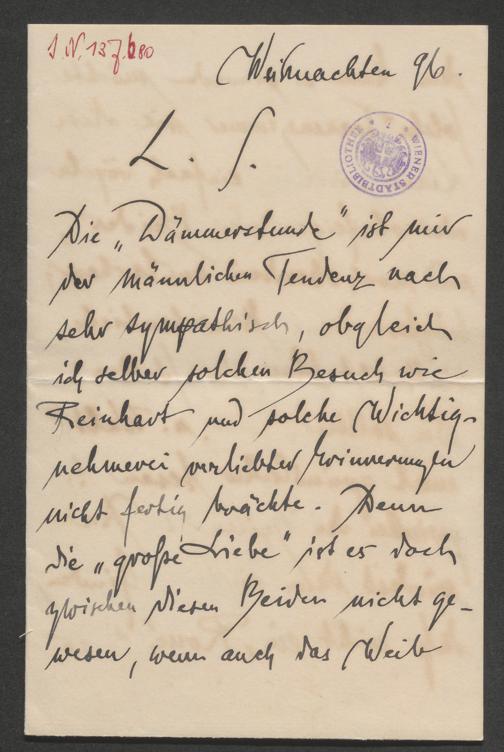 I. N. 137.680
Weihnachten 96.
WIENER STADTBIBLIOTHEK
L. S.
Die „Dämmerstunde" ist mir
der männlichen Tendenz nach
sehr sympathisch, obgleich
ich selber solchen Besuch wie
Reinhart und solche Wichtig-
nehmerei verliebter Erinnerungen
nicht fertig brächte. Denn
die „große Liebe" ist es doch
zwischen diesen Beiden nicht ge-
wesen, wenn auch das Weib